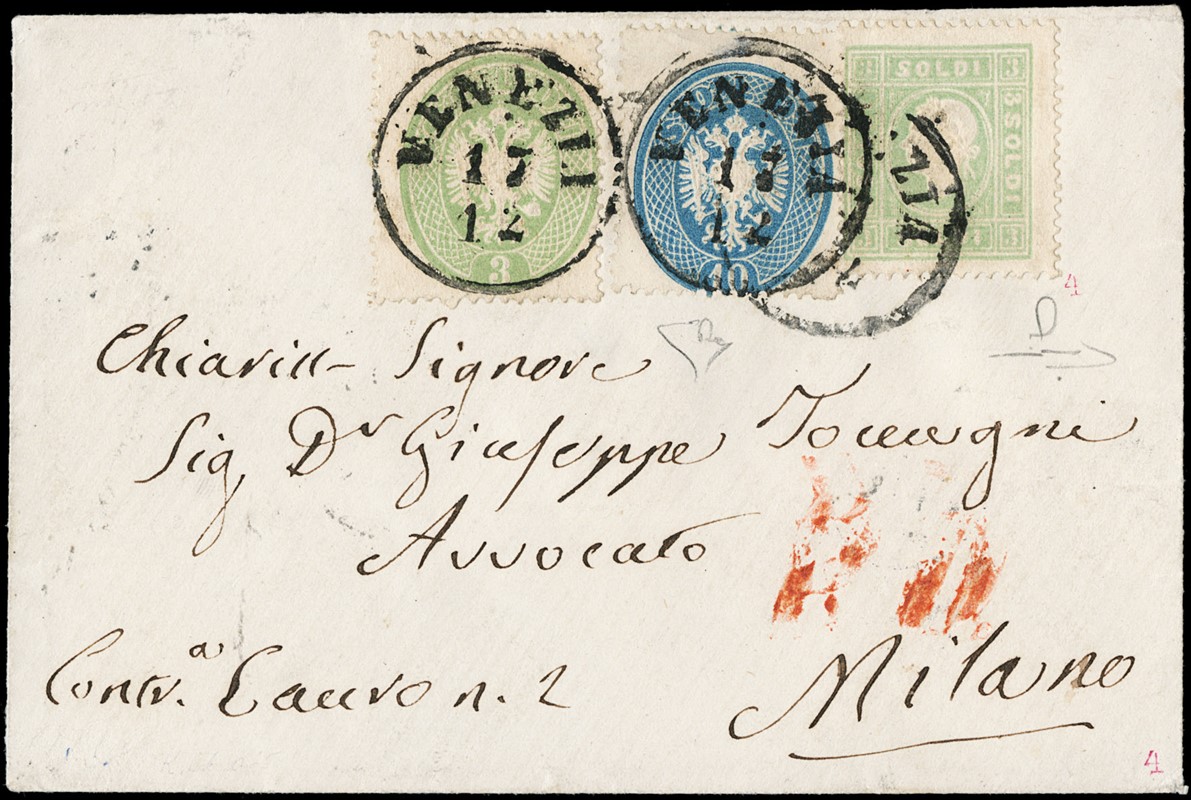 SOLDI
3 3
3 SOLDI
3
VENEZIA
17
12
3
VENEZIA
17
12
10
ZIA
4
Chiariss- Signore
Sig. Dr Giuseppe
Avvocato
P. D.
Contr.a Lauro n. 2
Milano
4